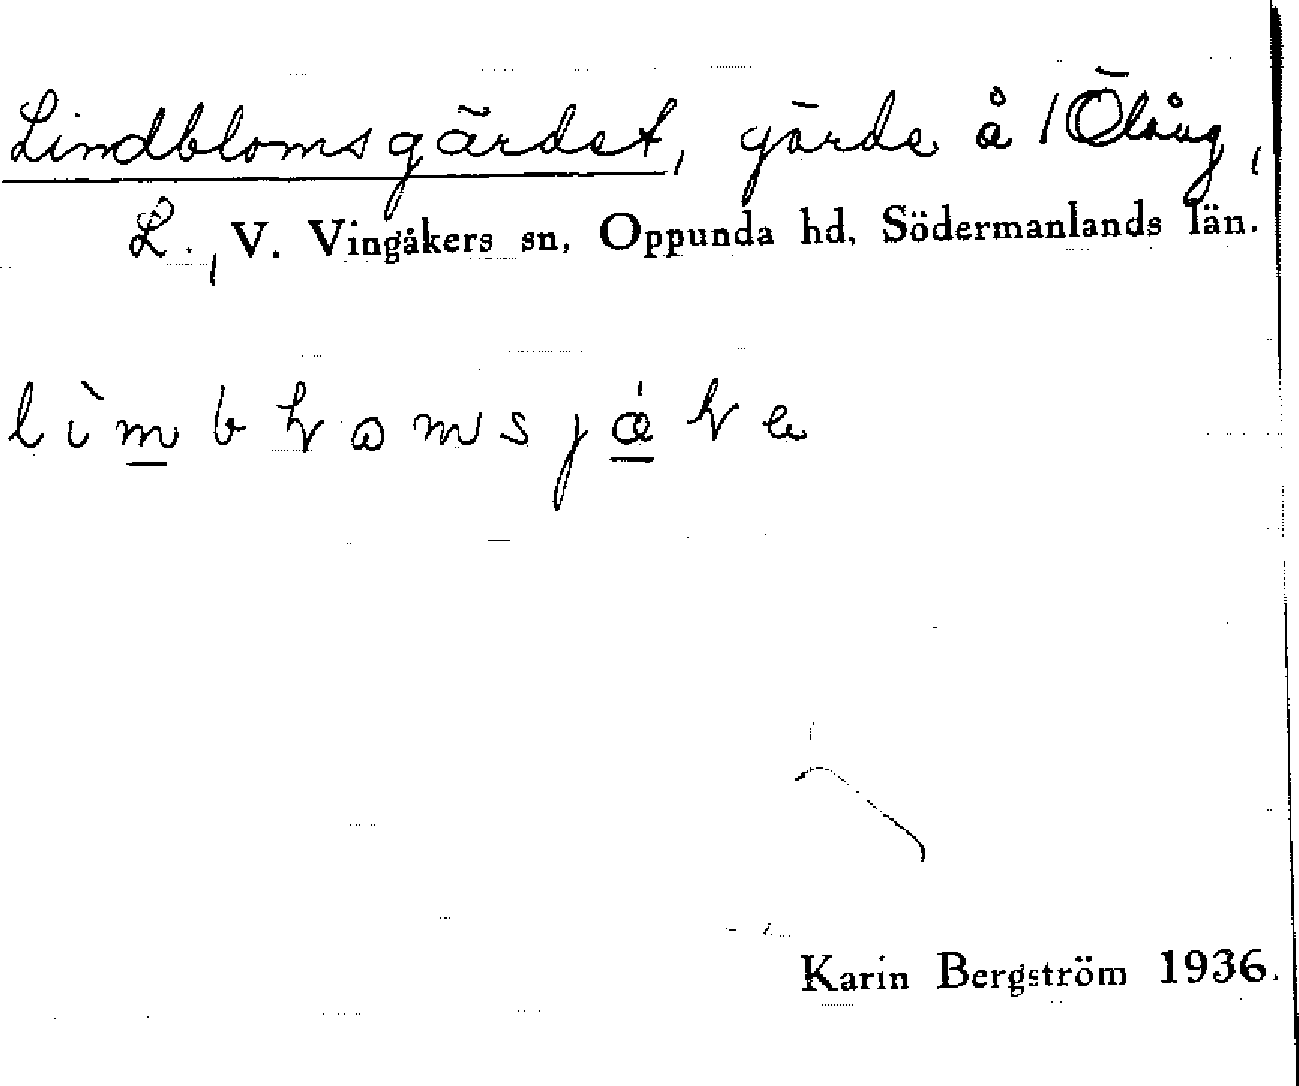 Lindblomsgärdet, gärde å 1 Ölång,
L., V. Vingåkers sn, Oppunda hd, Södermanlands län.
Karin Bergström 1936.